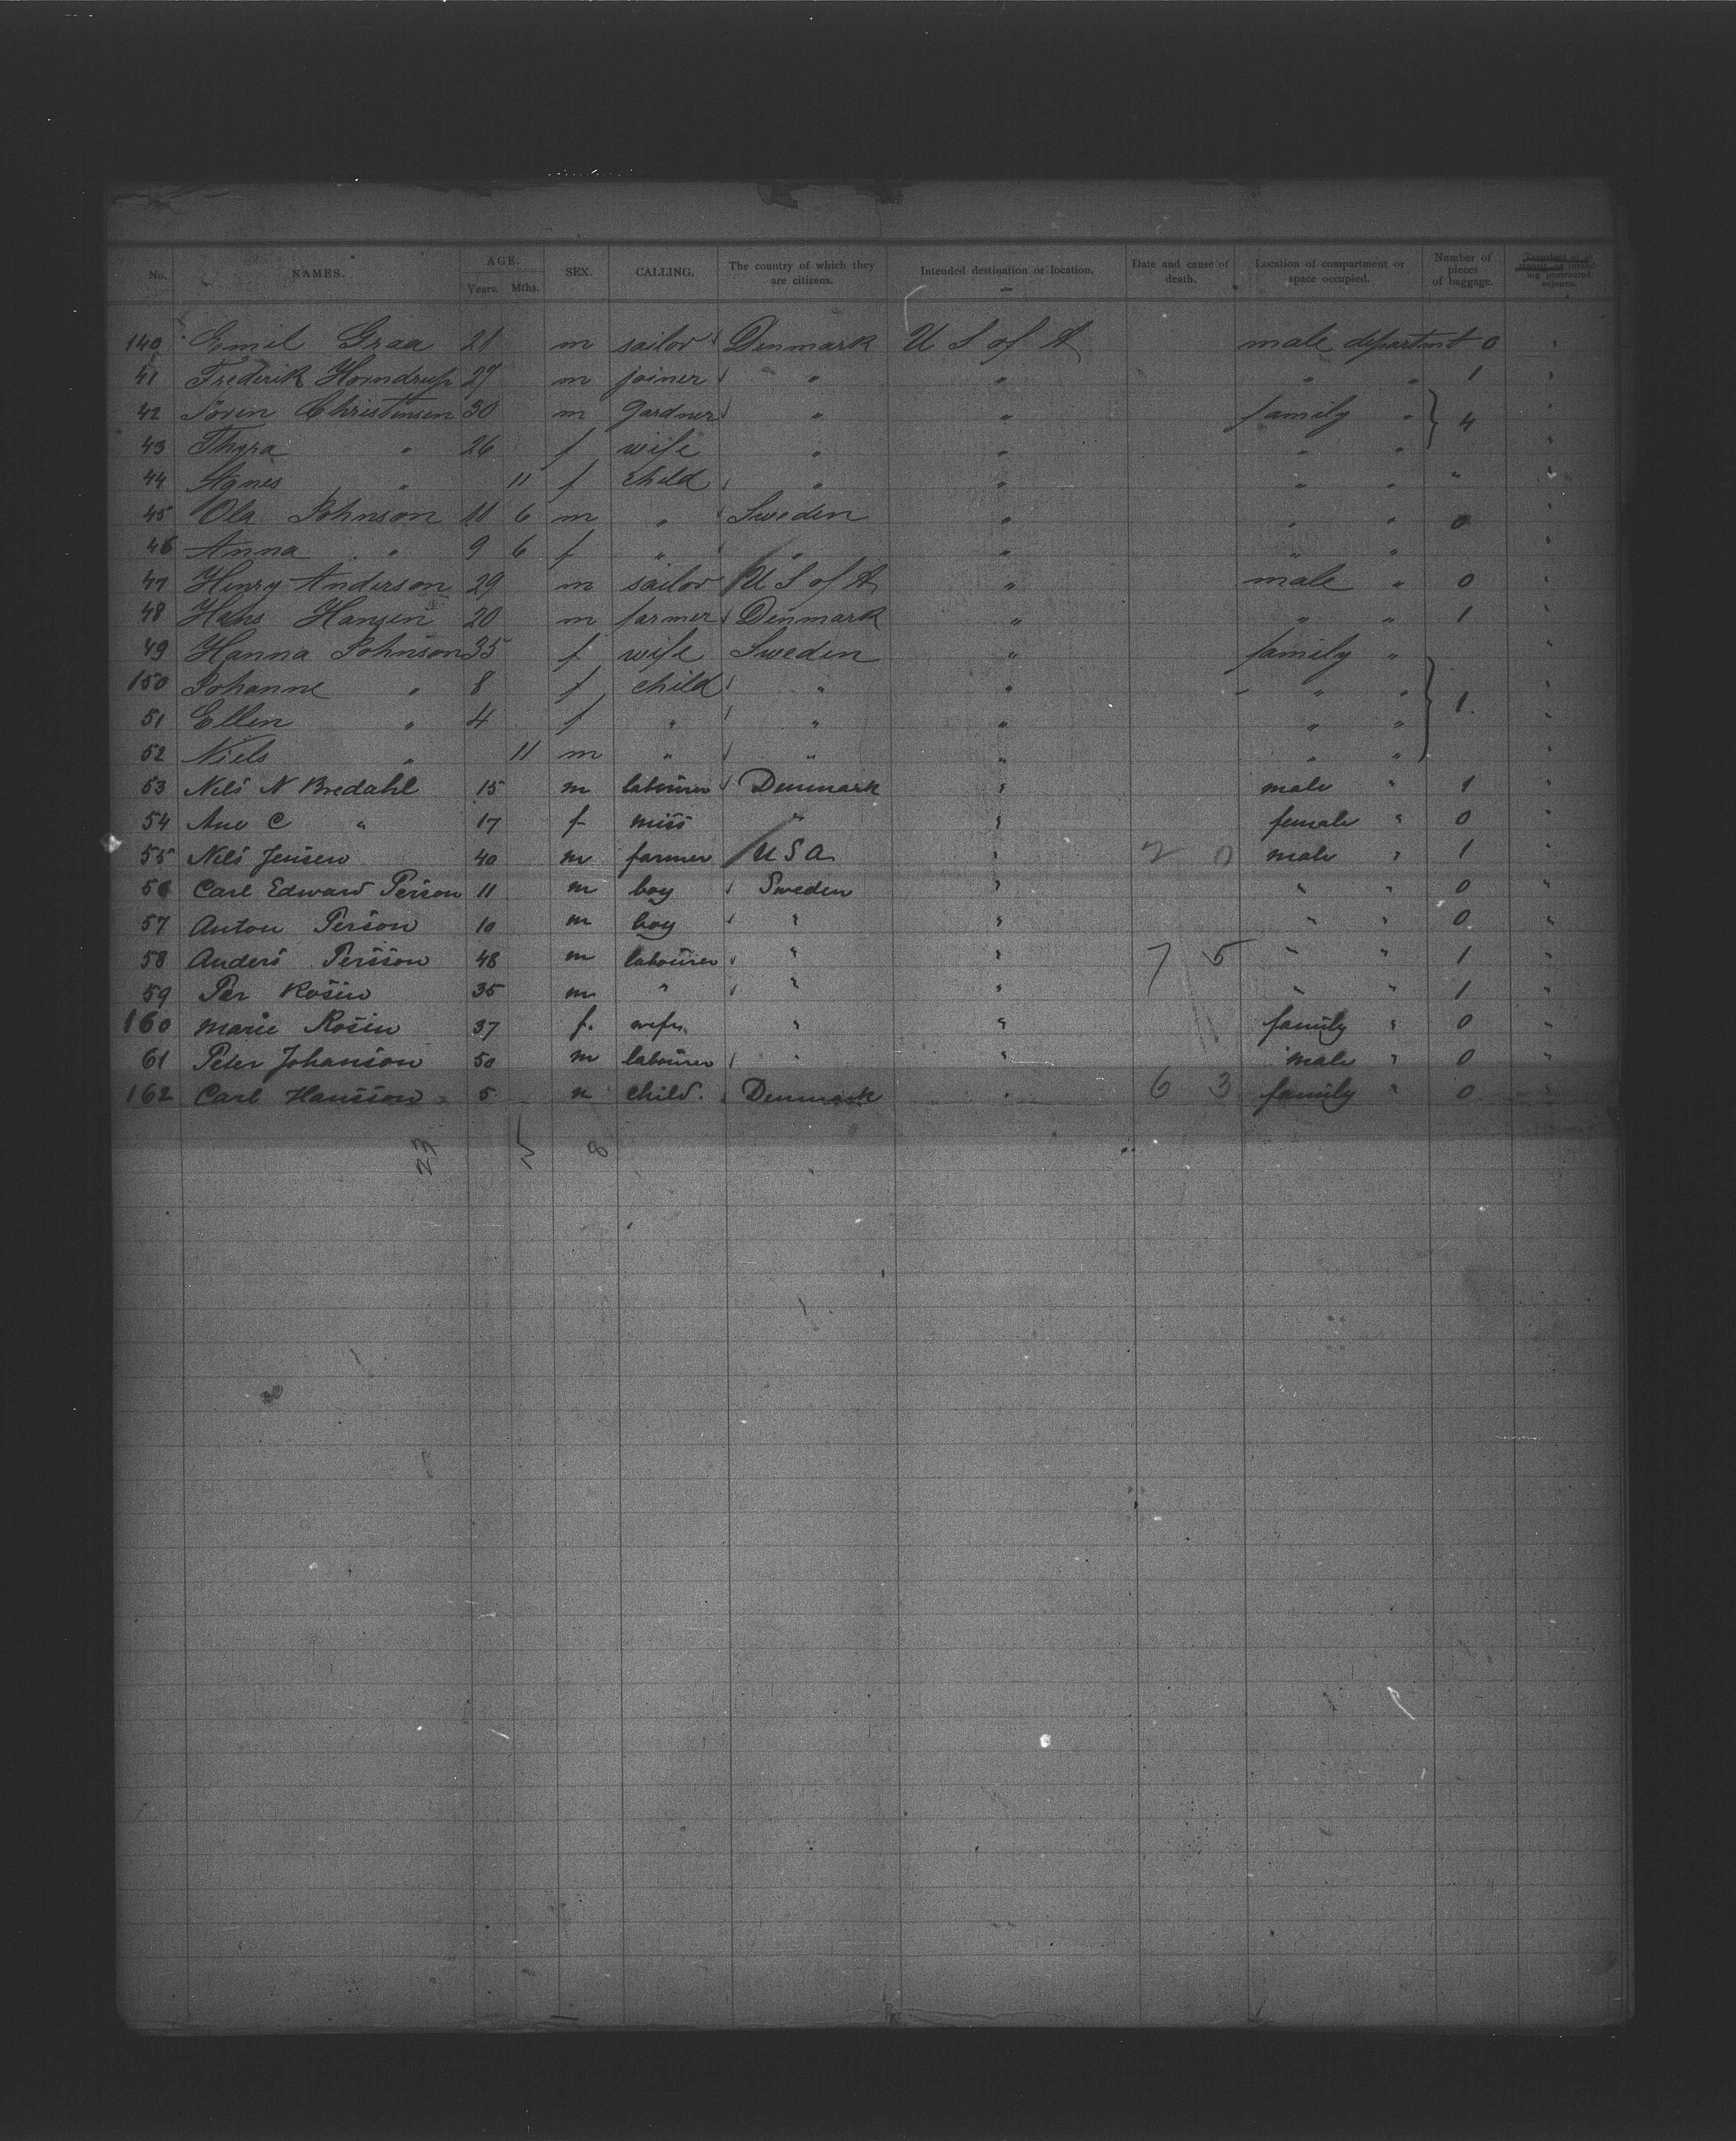 No. NAMES. AGE. Years. Mths. SEX. CALLING. The country of which they are citizens. Intended destination or location, Date and cause of death. Location of compartment or space occupied. Number of pieces of baggage.
140 Emil Graa 21 m sailor Denmark U S of A male department 0 "
41 Frederik Horndrup 27 m joiner " " " " 1 "
42 Sören Christensen 30 m gardner " " family " 4 "
43 Thyra " 26 f wife " " " " "
44 Agnes " 11 f child " " " " " "
45 Ola Johnson 11 6 m " Sweden " " " 0 "
46 Anna " 9 6 f " " " " " "
47 Henry Anderson 29 m sailor U S of A " male " 0 "
48 Hans Hansen 20 m farmer Denmark " " " 1 "
49 Hanna Johnson 35 f wife Sweden " family " "
150 Johanne " 8 f child " " " " "
51 Ellen " 4 f " " " " " 1. "
52 Niels " 11 m " " " " " "
53 Nels N Bredahl 15 m labourer Denmark " male " 1 "
54 Ane C " 17 f miss " " female " 0 "
55 Nels Jensen 40 m farmer U S A " 2 0 male " 1 "
56 Carl Edward Person 11 m boy Sweden " " " 0 "
57 Anton Person 10 m boy " " " " 0 "
58 Anders Persson 48 m labourer " " 7 5 " " 1 "
59 Per Rosen 35 m " " " " " 1 "
160 Marie Rosen 37 f. wife " " family " 0 "
61 Peter Johanson 50 m labourer " " male " 0 "
162 Carl Hansson 5 m child. Denmark " 6 3 family " 0 "
23 5 8